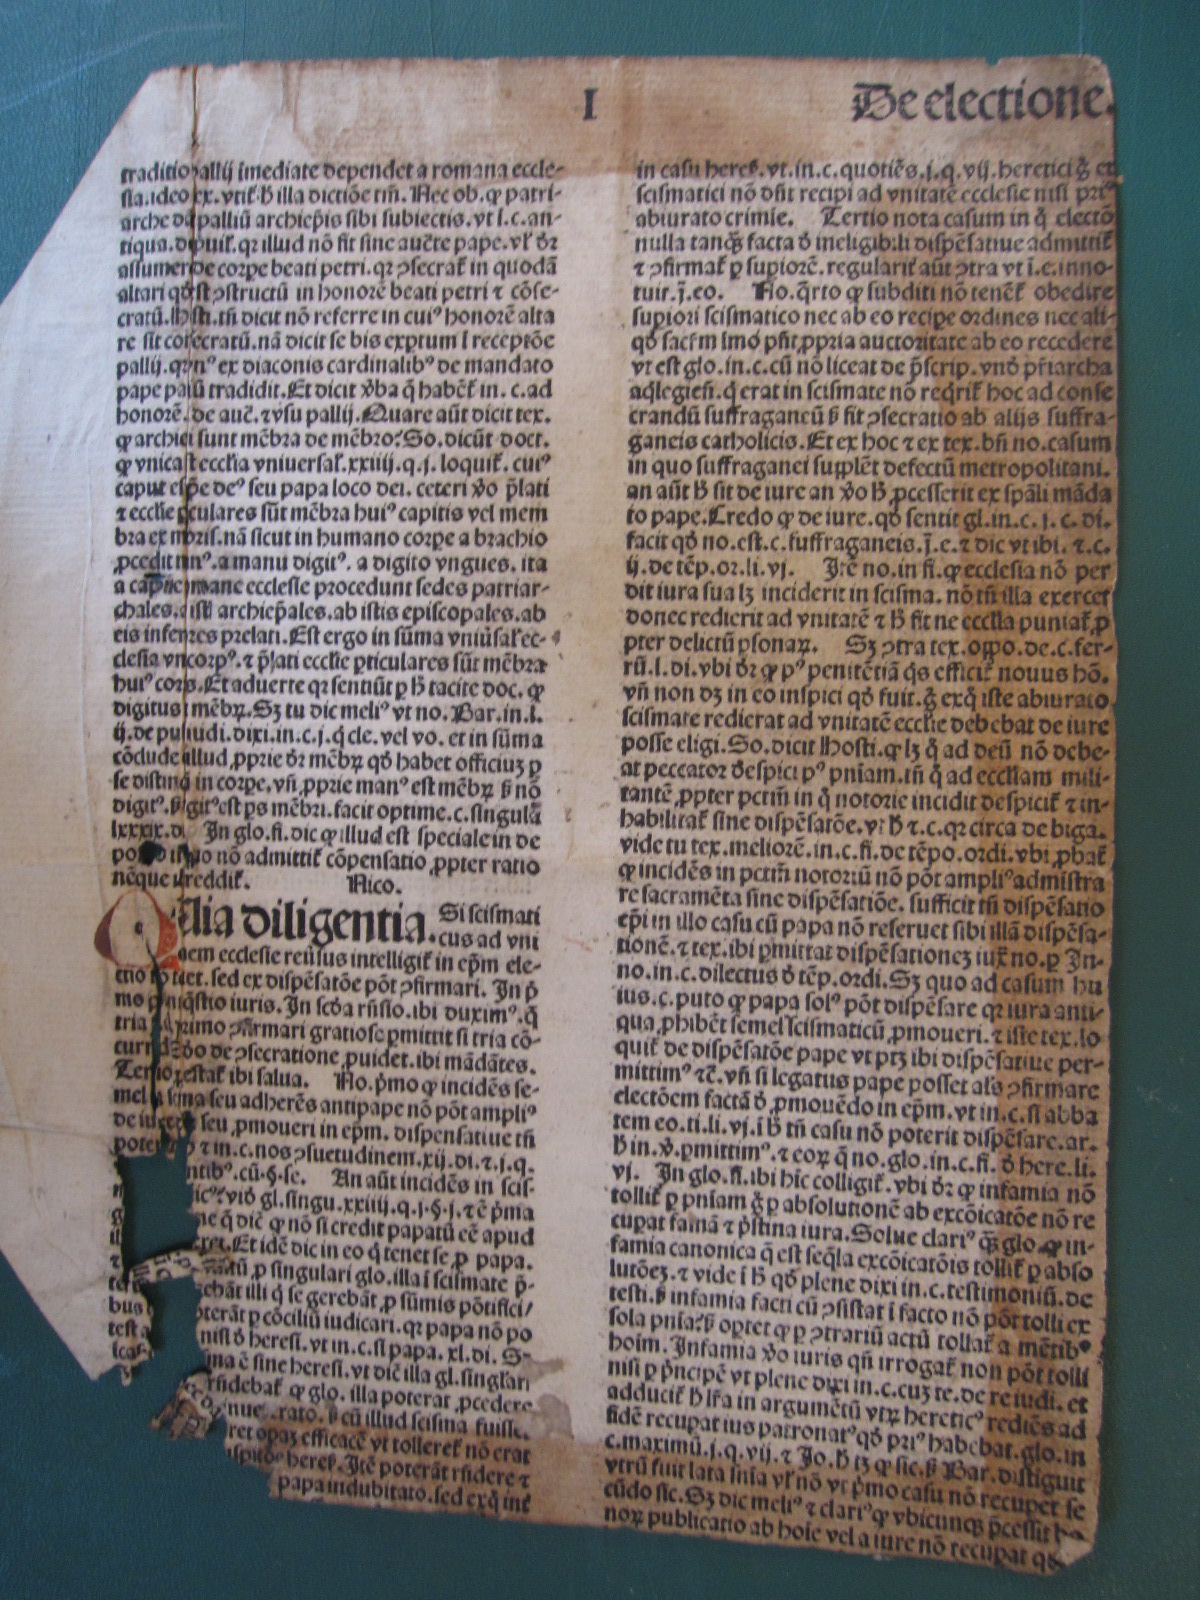 I
De electione.
traditio pallij imediate dependet a romana eccle-
sia.ideo ex. vtit̃ ħ illa dictiõe tm̃. Nec ob. ꝙ patri-
arche palliũ archiep̃is sibi subiectis. vt i. c. an-
tiqua. qꝛ illud nõ fit sine auc̃te pape. vl̃ ð̃r
assumer de coꝛpe beati petri. qꝛ ↄsecrat̃ in quodã
altari ↄstructũ in honoꝛẽ beati petri ⁊ cõse-
cratũ. tñ dicit nõ referre in cui⁹ honoꝛẽ alta
re sit cõsecratũ. nã dicit se bis exptum ĩ receptõe
pallij. ex diaconis cardinalib⁹ de mandato
pape tradidit. Et dicit v̾ba q̃ habẽt̃ in. c. ad
honoꝛẽ. de auc̃. ⁊ vsu pallij. Quare aũt dicit tex.
ꝙ archiepi sunt mẽbra de mẽbro? So. dicũt doct.
ꝙ vnica est eccl̃ia vniuersal̃. xxiiij. q. j. loquit̃. cui⁹
caput de⁹ seu papa loco dei. ceteri v̾o p̃lati
⁊ eccl̃ie sũt mẽbra hui⁹ capitis vel mem
bra ex nã sicut in humano coꝛpe a brachio
ꝓcedit man⁹. a manu digit⁹. a digito vngues. ita
a romane ecclesie procedunt sedes patriar-
chales. archiep̃ales. ab istis episcopales. ab
eis inferioꝛes prelati. Est ergo in sũma vniũsal̃ ec-
clesia ⁊ p̃lati eccl̃ie ꝑticulares sũt mẽbra
hui⁹ Et aduerte qꝛ sentiũt ꝑ ħ tacite doc. ꝙ
digitus mẽbꝝ. Sꝫ tu dic meli⁹ vt no. Bar. in. l.
ij. de dixi. in. c. j. q̃ cle. vel vo. et in sũma
cõclude illud ꝓprie ð̃r mẽbꝝ qð habet officiuꝫ ꝑ
se in coꝛpe. vñ ꝓprie man⁹ est mẽbꝝ nõ
digit⁹. est ps mẽbri. facit optime. c. singula
lxxxix. di. In glo. fi. dic ꝙ illud est speciale in de
nõ admittit̃ cõpensatio ꝓpter ratio
nẽque reddit̃. Nico.
Qlia diligentia. Si scismati
cus ad vni
tem ecclesie reũsus intelligit̃ in ep̃m ele-
ctio sed ex dispẽsatõe põt ↄfirmari. In p̃
mo iuris. In scða rñsio. ibi duxim⁹. q̃
tria primo ↄfirmari gratiose ꝑmittit si tria cõ-
de ↄsecratione ꝓuidet. ibi mãdãtes.
Tertio restat̃ ibi salua. No. p̃mo ꝙ incidẽs se-
mel seu adherẽs antipape nõ põt ampli⁹
de iure seu ꝓmoueri in ep̃m. dispensatiue tñ
⁊ in. c. nos ↄsuetudinem. xij. di. ⁊. j. q.
cũ. §. se. An aũt incidẽs in scis-
gl. singu. xxiiij. q. j. §. j. ⁊ ẽ p̃ma
q̃ dic̃ ꝙ nõ si credit papatũ eẽ apud
Et idẽ dic in eo q̃ tenet se ꝓ papa.
ꝑ singulari glo. illa ĩ scismate p̃-
illi q̃ se gerebãt ꝓ sũmis põtifici/
poterãt ꝑ cõciliũ iudicari. qꝛ papa nõ po
nisi ð heresi. vt in. c. si papa. xl. di. S-
ẽ sine heresi. vt dic̃ illa gl. singl̃ari
rñdebat̃ ꝙ glo. illa poterat ꝓcedere
cũ illud scisma fuiss
efficacẽ vt tolleret̃ nõ erat
heres. Itẽ poterãt rñdere ⁊
papa indubitato. sed exq̃ int̃
in casu heres̃. vt. in. c. quotiẽs. j. q. vij. heretici g̃ et
scismatici nõ dñt recipi ad vnitatẽ ecclesie nisi pri⁹
abiurato crimie. Tertio nota casum in q̃ electo
nulla tanq̃ȝ facta ð ineligibili dispẽsatiue admittit̃
⁊ ↄfirmat̃ ꝑ supioꝛẽ. regularit̃ aũt ↄtra vt ĩ. c. inno-
tuit. j̃. eo. No. q̃rto ꝙ subditi nõ tenẽt̃ obedire
supioꝛi scismatico nec ab eo recipe oꝛdines nec ali-
qð sac̃m imo pñt ꝓpria auctoꝛitate ab eo recedere
vt est glo. in. c. cũ nõ liceat de p̃scrip. vnð pr̃iarcha
aq̃legieñ. q̃ erat in scismate nõ reqͥrit̃ hoc ad conse
crandũ suffraganeũ fit ↄsecratio ab alijs suffra-
ganeis catholicis. Et ex hoc ⁊ ex tex. bñ no. casum
in quo suffraganei supplẽt defectũ metropolitani.
an aũt ħ sit de iure an v̾o ħ ꝓcesserit ex sp̃ali mãda
to pape. Credo ꝙ de iure. qð sentit gl. in. c. j. c. di.
facit qð no. est. c. suffraganeis. j̃. e. ⁊ dic vt ibi. ⁊. c.
ij. de tẽp. oꝛ. li. vj. Itẽ no. in fi. ꝙ ecclesia nõ per
dit iura sua lꝫ inciderit in scisma. nõ tñ illa exercet
donec redierit ad vnitatẽ ⁊ ħ fit ne eccl̃ia puniat̃ ꝓ
pter delictũ ꝑsonaꝝ. Sꝫ ↄtra tex. oppo. de. c. fer-
rũ. l. di. vbi ð̃r ꝙ p⁹ penitẽtiã q̃s efficit̃ nouus hõ.
vñ non dꝫ in eo inspici qð fuit. g̃ exq̃ iste abiurato
scismate redierat ad vnitatẽ eccl̃ie debebat de iure
posse eligi. So. dicit Hosti. ꝙ lꝫ q̃ ad deũ nõ debe-
at peccatoꝛ despici p⁹ pñiam. tñ q̃ ad eccl̃iam mili-
tantẽ ꝓpter pctm̃ in q̃ notoꝛie incidit despicit̃ ⁊ in-
habilitat̃ sine dispẽsatõe. vt ħ ⁊. c. qꝛ circa de biga.
vide tu tex. melioꝛẽ. in. c. fi. de tẽpo. oꝛdi. vbi ꝓbat̃
ꝙ incidẽs in pctm̃ notoꝛiũ nõ põt ampli⁹ admistra
re sacramẽta sine dispẽsatiõe. sufficit tñ dispẽsatio
ep̃i in illo casu cũ papa nõ reseruet sibi illã dispẽsa-
tionẽ. ⁊ tex. ibi ꝑmittat dispẽsationeȝ iux̃ no. ꝑ In-
no. in. c. dilectus ð tẽp. oꝛdi. Sꝫ quo ad casum hu
ius. c. puto ꝙ papa sol⁹ põt dispẽsare qꝛ iura anti-
qua ꝓhibẽt semel scismaticũ ꝓmoueri. ⁊ iste tex. lo
quit̃ de dispẽsatõe pape vt ptꝫ ibi dispẽsatiue per-
mittim⁹ ⁊c̃. vñ si legatus pape posset al̃s ↄfirmare
electõem factã ð ꝓmouẽdo in ep̃m. vt in. c. si abba
tem eo. ti. li. vj. ĩ ħ tñ casu nõ poterit dispẽsare. ar.
ħ in. v̾. ꝑmittim⁹. ⁊ eoꝝ q̃ no. glo. in. c. fi. ð here. li.
vj. In glo. fi. ibi hic colligit̃. vbi ð̃r ꝙ infamia nõ
tollit̃ ꝑ pñiam g̃ ꝑ absolutionẽ ab excõicatõe nõ re
cupat famã ⁊ p̃stina iura. Solue clari⁹ q̃ȝ glo. ꝙ in-
famia canonica q̃ est seq̃la excõicatõis tollit̃ ꝑ abso
lutõeȝ. ⁊ vide ĩ ħ qð plene dixi in. c. testimoniũ. de
testi. infamia facti cũ ↄsistat ĩ facto nõ põt tolli ex
sola pnia? opꝛtet ꝙ ꝑ ↄtrariũ actũ tollat̃ a mẽtib⁹
hoim. Infamia v̾o iuris qñ irrogat̃ non põt tolli
nisi ꝑ p̃ncipẽ vt plene dixi in. c. cuȝ te. de re iudi. et
adducit̃ ħ lr̃a in argumẽtũ vtꝝ heretic⁹ rediẽs ad
fidẽ recupat ius patronat⁹ qð pri⁹ habebat. glo. in
c. maximũ. j. q. vij. ⁊ Jo. ħ tꝫ ꝙ sic. Bar. distiguit
vtrũ fuit lata s̃nia vl̃ nõ vt p̃mo casu nõ recupet se
cũdo sic. Sꝫ dic meli⁹ ⁊ clari⁹ ꝙ vbicunqȝ p̃cessit
noꝝ publicatio ab hoie vel a iure nõ recupat